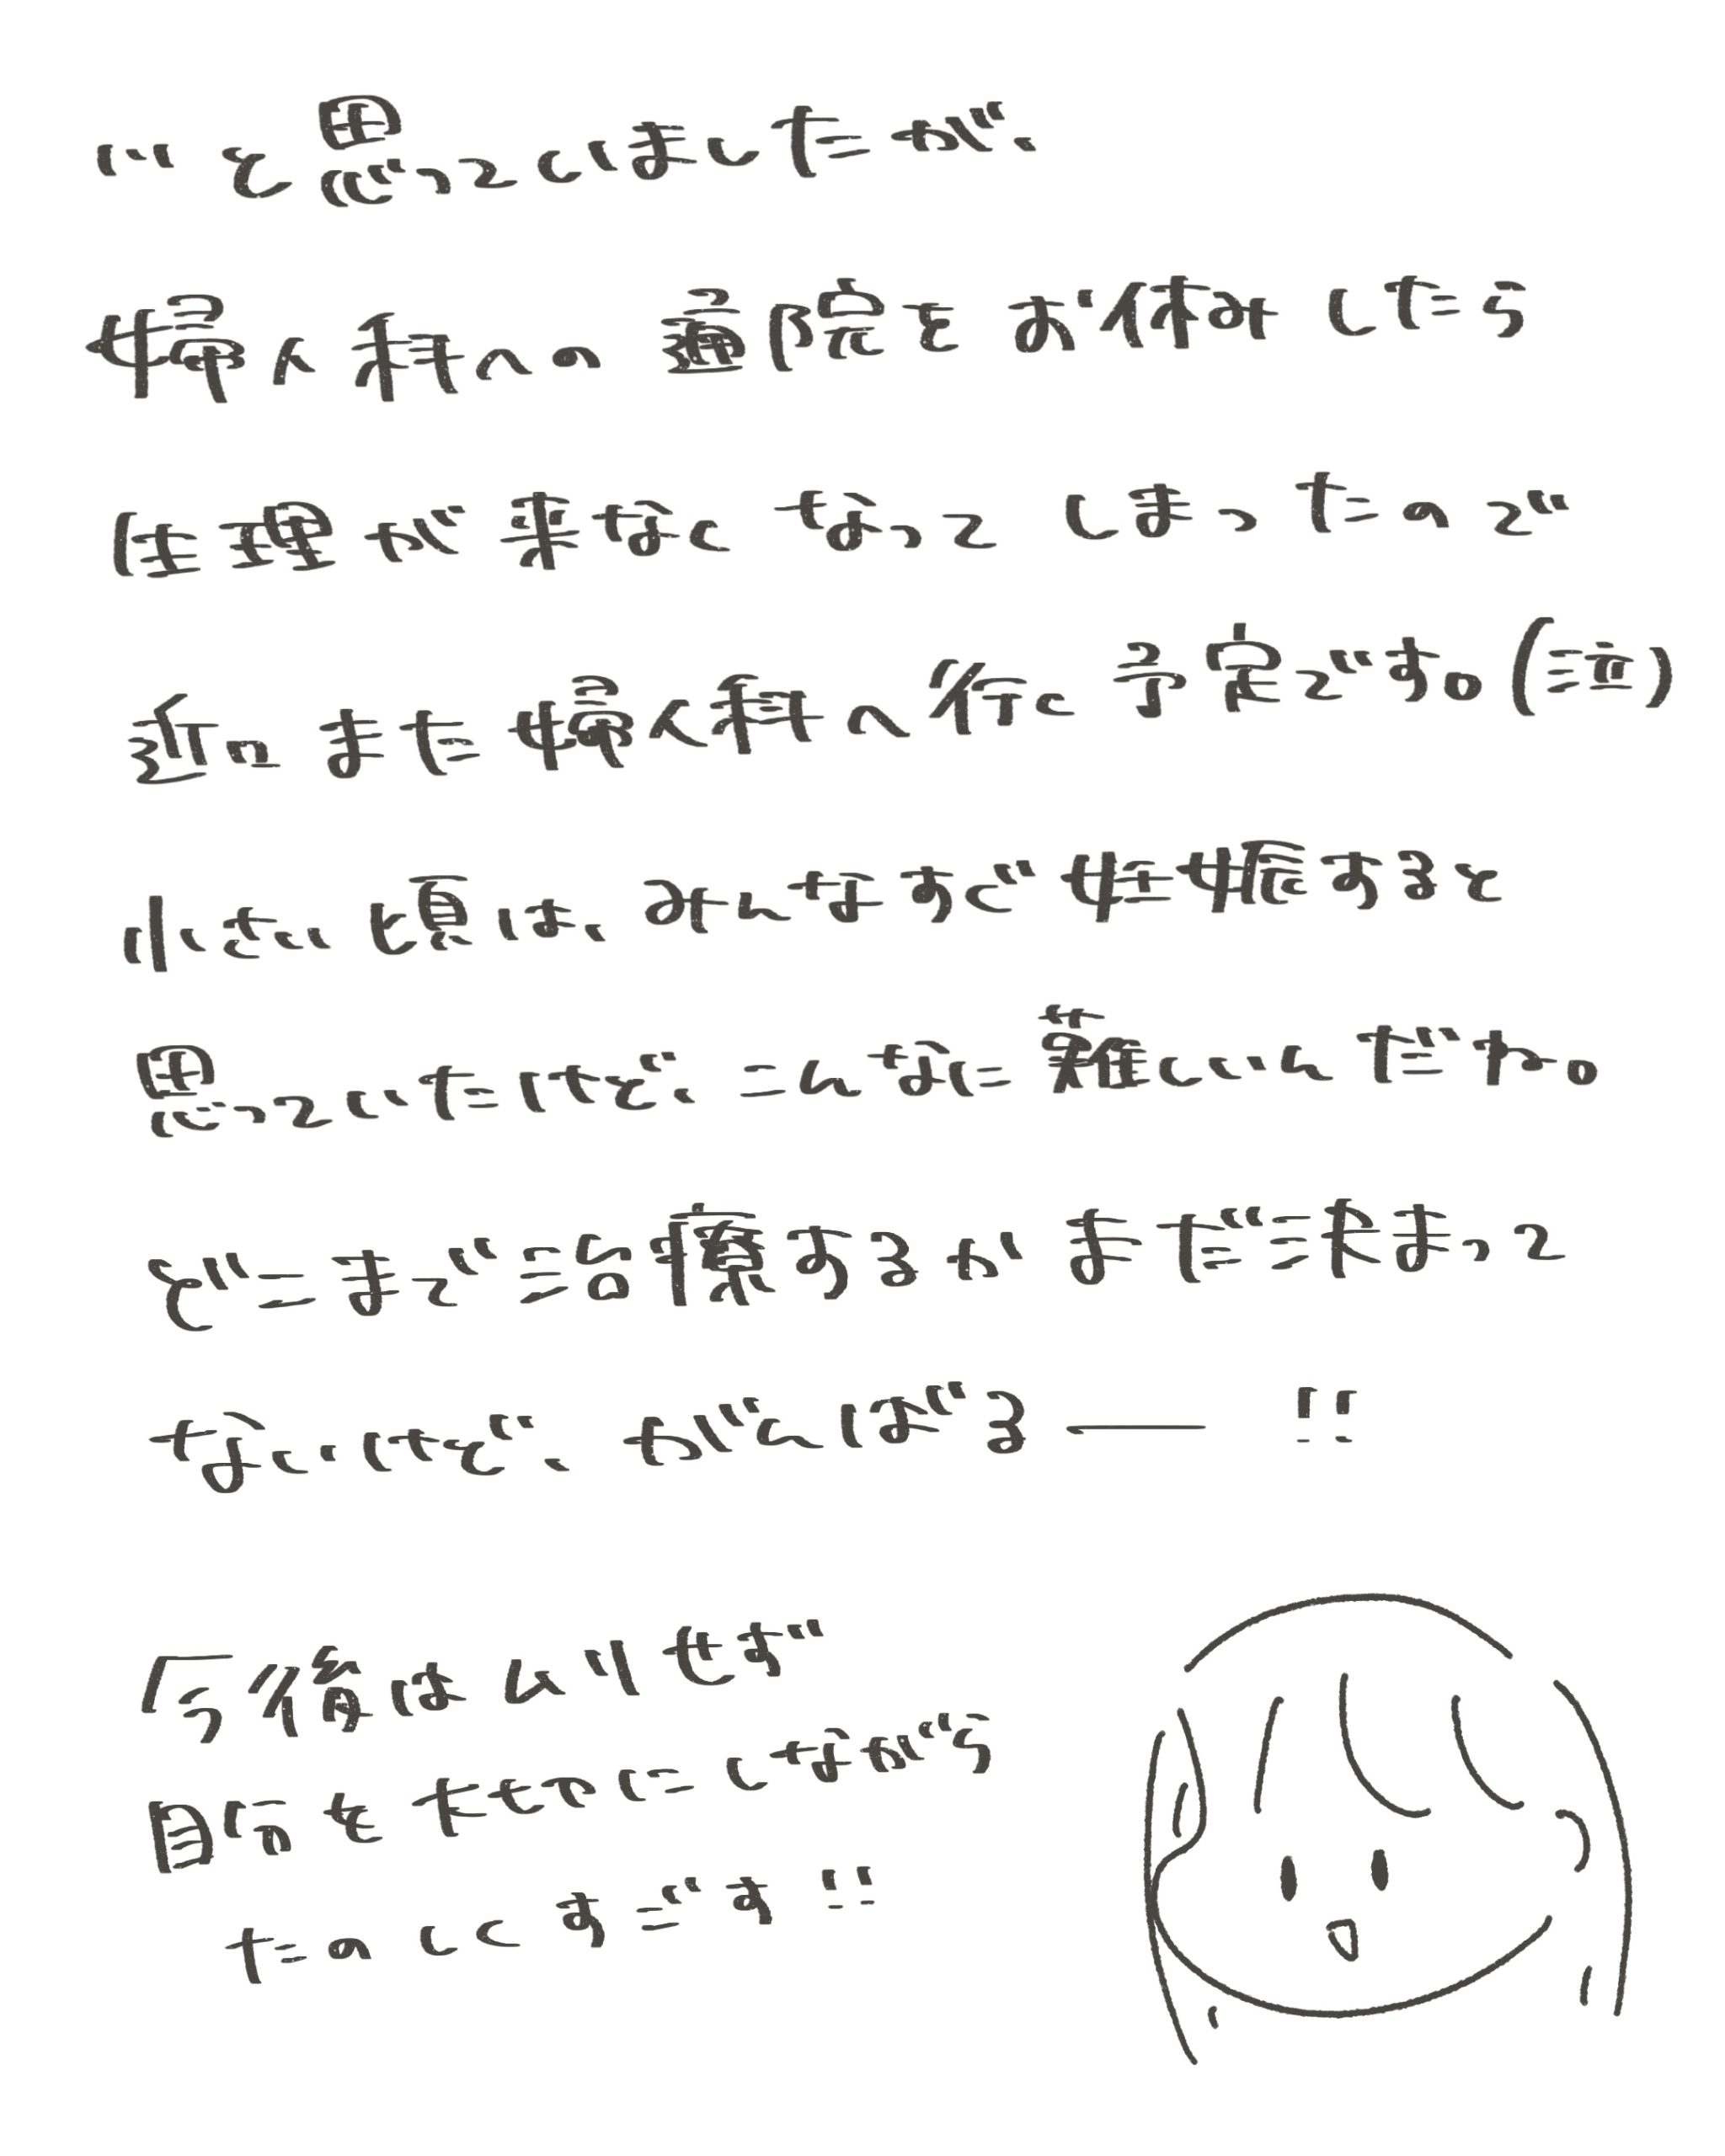 …と思っていましたが、
婦人科への通院をお休みしたら
生理が来なくなってしまったので
近日また婦人科へ行く予定です。(泣)
小さい頃は、みんなすぐ妊娠すると
思っていたけど、こんなに難しいんだね。
どこまで治療するかまだ決まって
ないけど、がんばるー!!
今後はムリせず
自分を大切にしながら
たのしくすごす!!